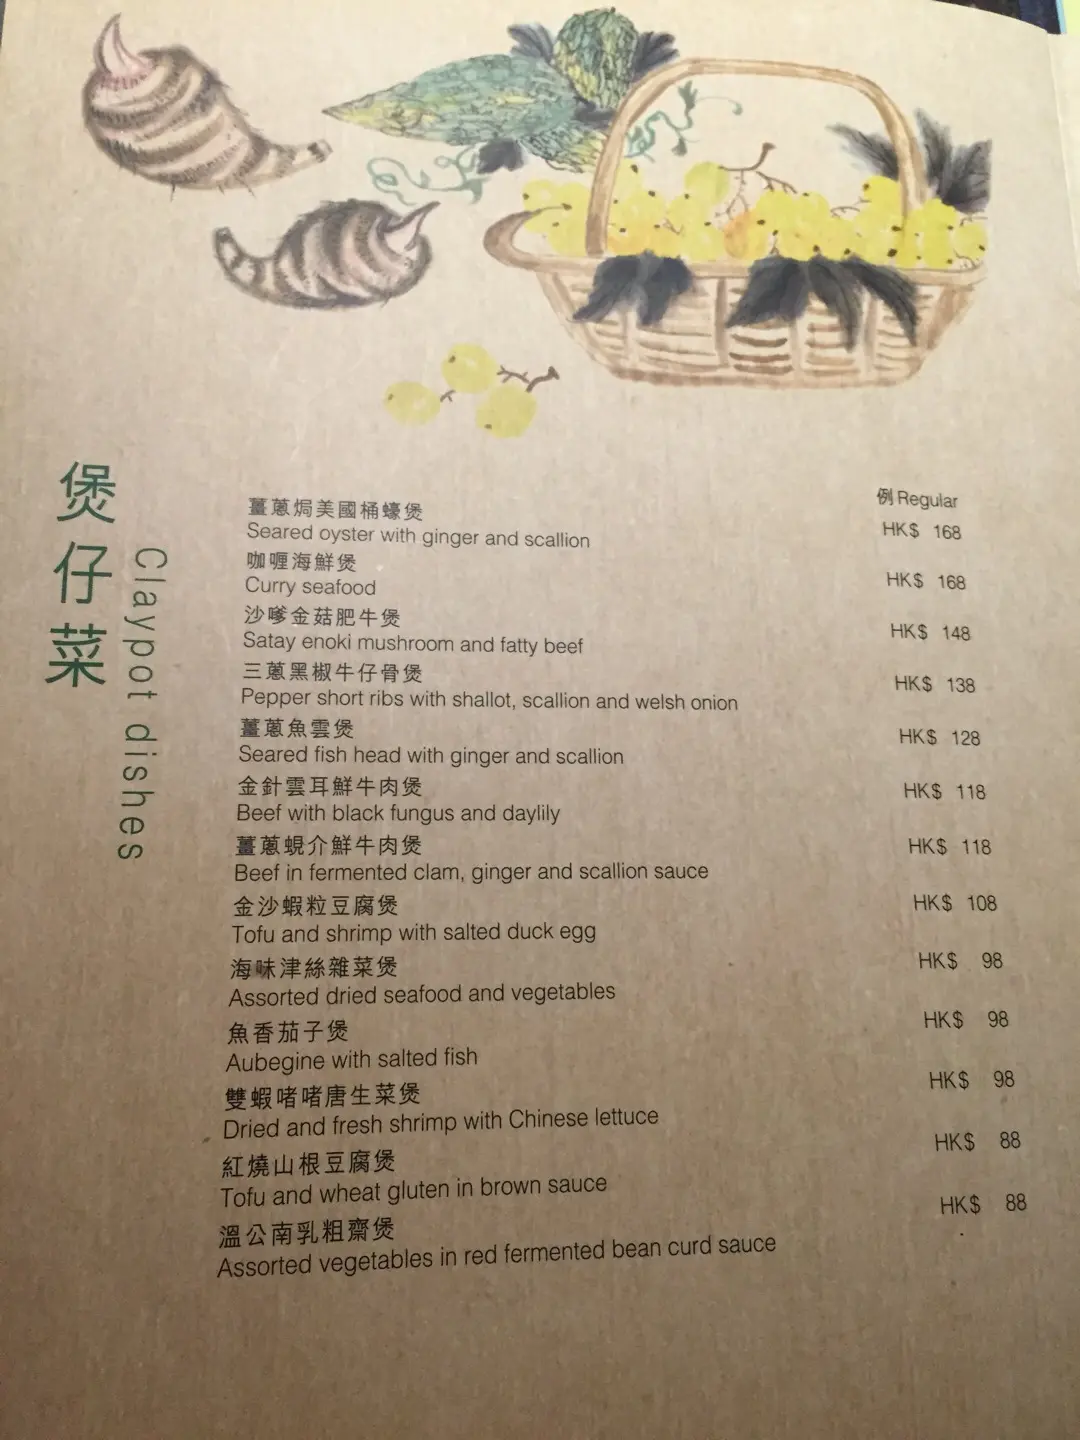 煲仔菜
Claypot dishes
例 Regular
薑蔥焗美國桶蠔煲 HK$ 168
Seared oyster with ginger and scallion
咖喱海鮮煲 HK$ 168
Curry seafood
沙嗲金菇肥牛煲 HK$ 148
Satay enoki mushroom and fatty beef
三蔥黑椒牛仔骨煲 HK$ 138
Pepper short ribs with shallot, scallion and welsh onion
薑蔥魚雲煲 HK$ 128
Seared fish head with ginger and scallion
金針雲耳鮮牛肉煲 HK$ 118
Beef with black fungus and daylily
薑蔥蜆介鮮牛肉煲 HK$ 118
Beef in fermented clam, ginger and scallion sauce
金沙蝦粒豆腐煲 HK$ 108
Tofu and shrimp with salted duck egg
海味津絲雜菜煲 HK$ 98
Assorted dried seafood and vegetables
魚香茄子煲 HK$ 98
Aubegine with salted fish
雙蝦啫啫唐生菜煲 HK$ 98
Dried and fresh shrimp with Chinese lettuce
紅燒山根豆腐煲 HK$ 88
Tofu and wheat gluten in brown sauce
溫公南乳粗齋煲 HK$ 88
Assorted vegetables in red fermented bean curd sauce